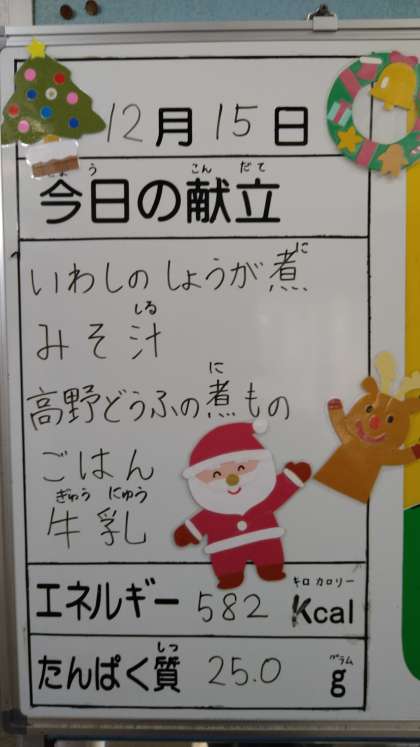 12月15日
きょう こん だて
今日の献立
に
いわしのしょうが煮
しる
みそ汁
に
高野どうふの煮もの
ごはん
ぎゅう にゅう
牛乳
キロ カロリー
エネルギー 582 Kcal
しつ グラム
たんぱく質 25.0 g